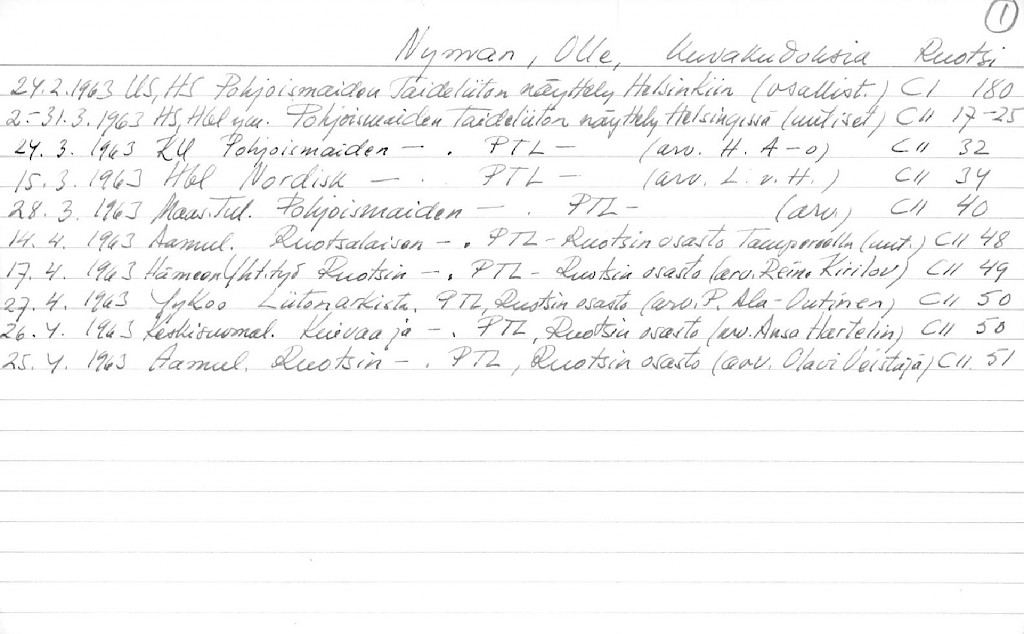 1
Nyman, Olle, Kuvakudoksia Ruotsi
24.2.1963 US, HS Pohjoismaiden Taideliiton näyttely Helsinkiin (osallist.) CI 180
2.-31.3.1963 HS, Hbl ym. Pohjoismaiden Taideliiton näyttely Helsingissä (uutiset) CII 17-25
24.3.1963 KU Pohjoismaiden — . PTL — (arv. H. A-o) CII 32
15.3.1963 Hbl Nordisk — . PTL — (arv. L. v. H.) CII 34
28.3.1963 Maas.Tul. Pohjoismaiden — . PTL — (arv.) CII 40
14.4.1963 Aamul. Ruotsalaisen — . PTL - Ruotsin osasto Tampereella (uut.) CII 48
17.4.1963 Hämeen Yhtityö Ruotsin — . PTL - Ruotsin osasto (arv. Reino Kirilov) CII 49
27.4.1963 PTL, Ruotsin osasto (arv. P. Ala-Outinen) CII 50
26.4.1963 Keskisuomal. — . PTL, Ruotsin osasto (arv. Ansa Hartelin) CII 50
25.4.1963 Aamul. Ruotsin — . PTL, Ruotsin osasto (arv. Olavi Veistäjä) CII 51